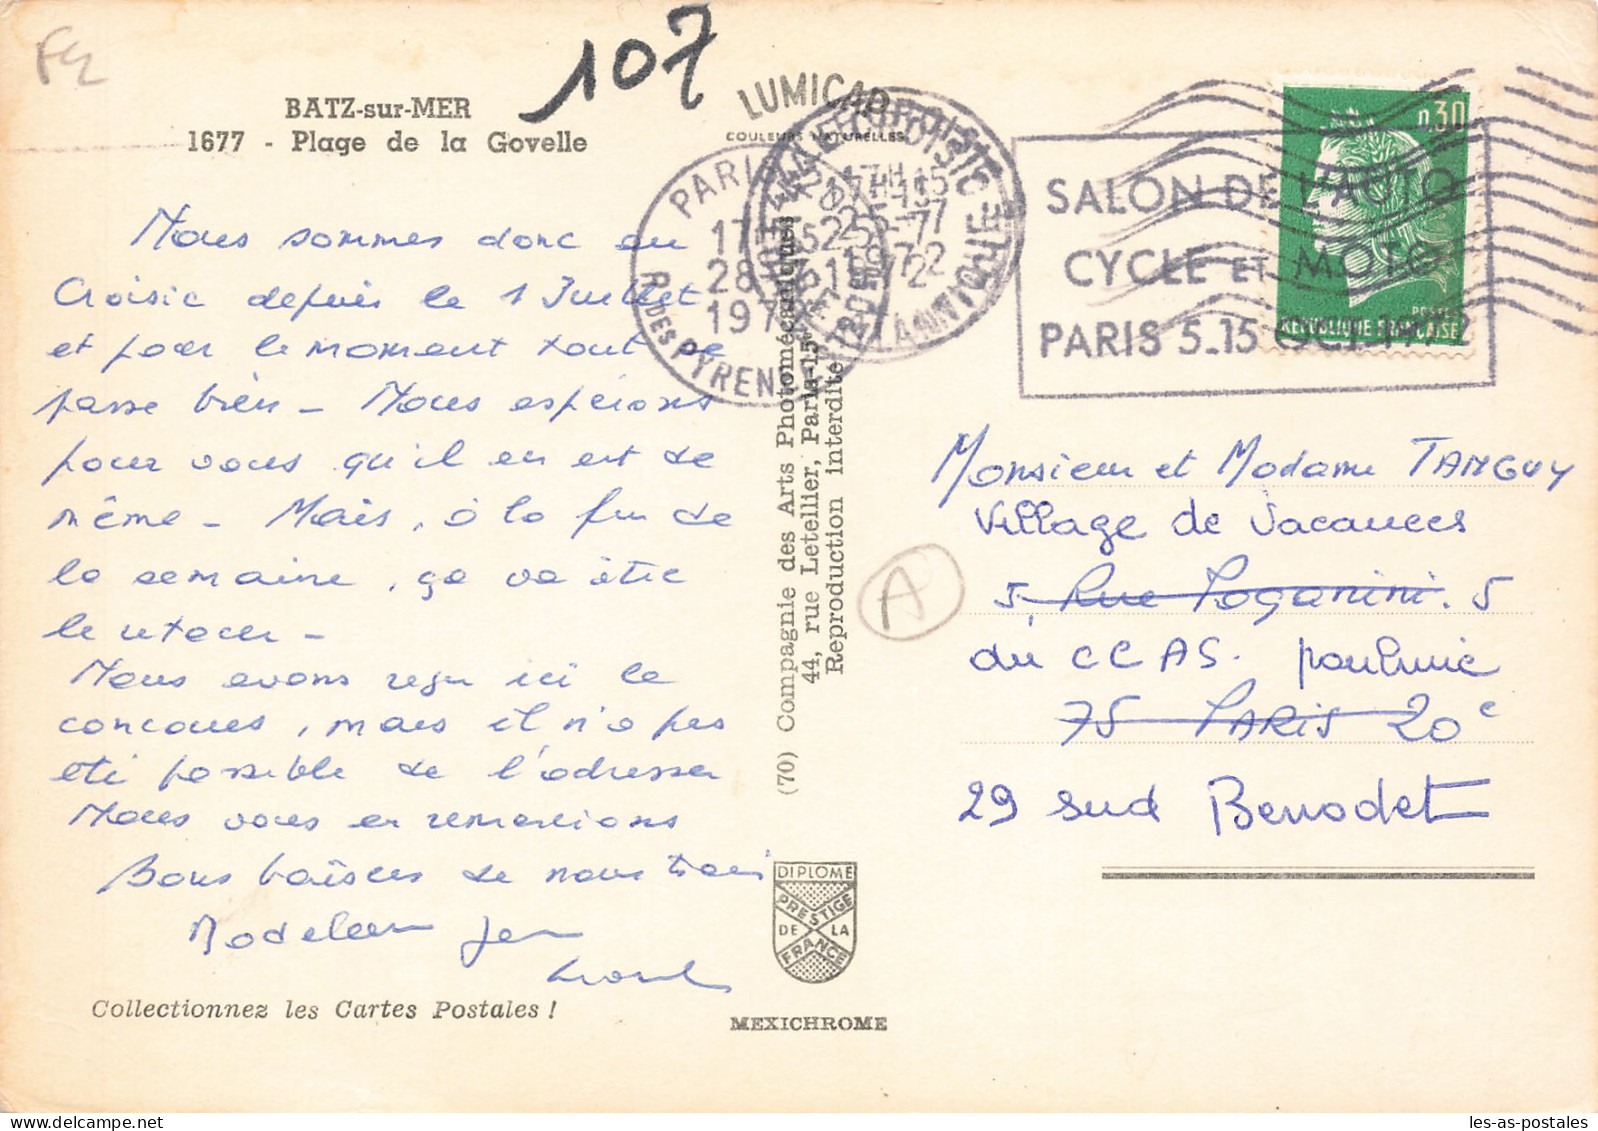 107
BATZ-sur-MER
1677 - Plage de la Govelle
LUMICAP
COULEURS NATURELLES
Nous sommes donc au
Croisic depuis le 1 Juillet
et pour le moment tout se
passe bien - Nous espérons
pour vous qu'il en est de
même - Mais, à la fin de
la semaine, ça va être
le retour -
Nous avons reçu ici le
concours, mais il n'a pas
été possible de l'adresser
Nous vous en remercions
Bons baisers de nous trois
Madeleine Jean
Collectionnez les Cartes Postales !
(70) Compagnie des Arts Photomécaniques
44, rue Letellier, Paris-15e
Reproduction interdite
DIPLOME
PRESTIGE
DE LA
FRANCE
MEXICHROME
PARIS
17H15
28-7
1972
R. des PYRENEES
44 LE CROISIC
17H15
25-7
1972
LOIRE ATLANTIQUE
SALON DE L'AUTO
CYCLE ET MOTO
PARIS 5-15 OCT 1972
0,30
POSTES
REPUBLIQUE FRANCAISE
Monsieur et Madame TANGUY
Village de Vacances
5 Rue Paganini. 5
du CCAS.
75 PARIS 20e
29 sud Benodet
A
les-as-postales